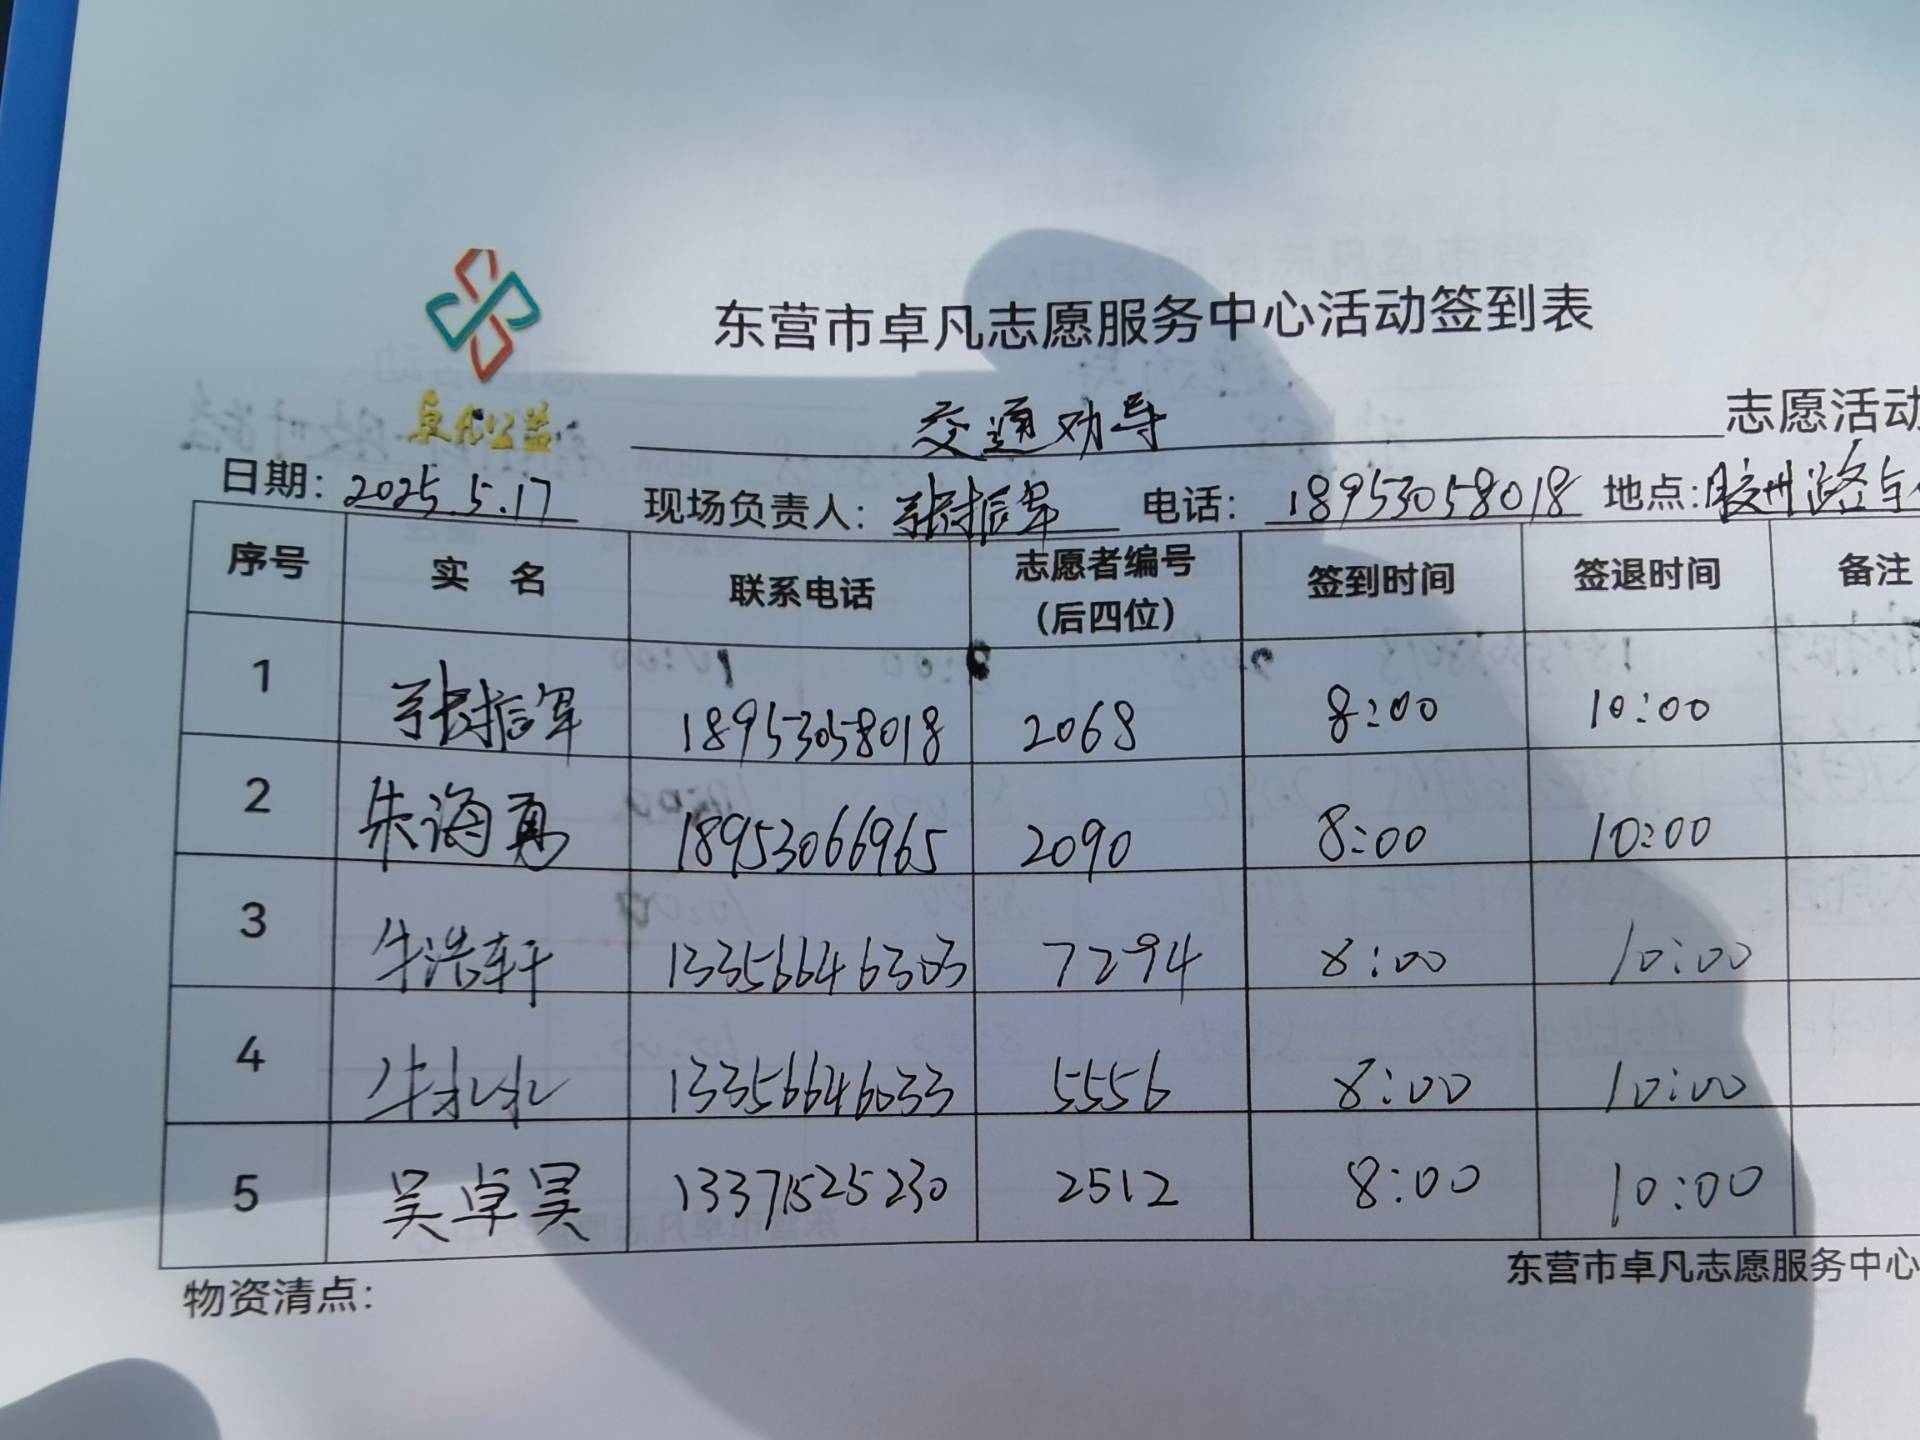 东营市卓凡志愿服务中心活动签到表
卓凡公益
交通劝导 志愿活动
日期: 2025.5.17 现场负责人: 张振军 电话: 18953058018 地点: 胶州路与
序号 实 名 联系电话 志愿者编号(后四位) 签到时间 签退时间 备注
1 张振军 18953058018 2068 8:00 10:00
2 朱海勇 18953066965 2090 8:00 10:00
3 牛浩轩 13356646303 7294 8:00 10:00
4 牛 13356646033 5556 8:00 10:00
5 吴卓昊 13371525230 2512 8:00 10:00
东营市卓凡志愿服务中心
物资清点: